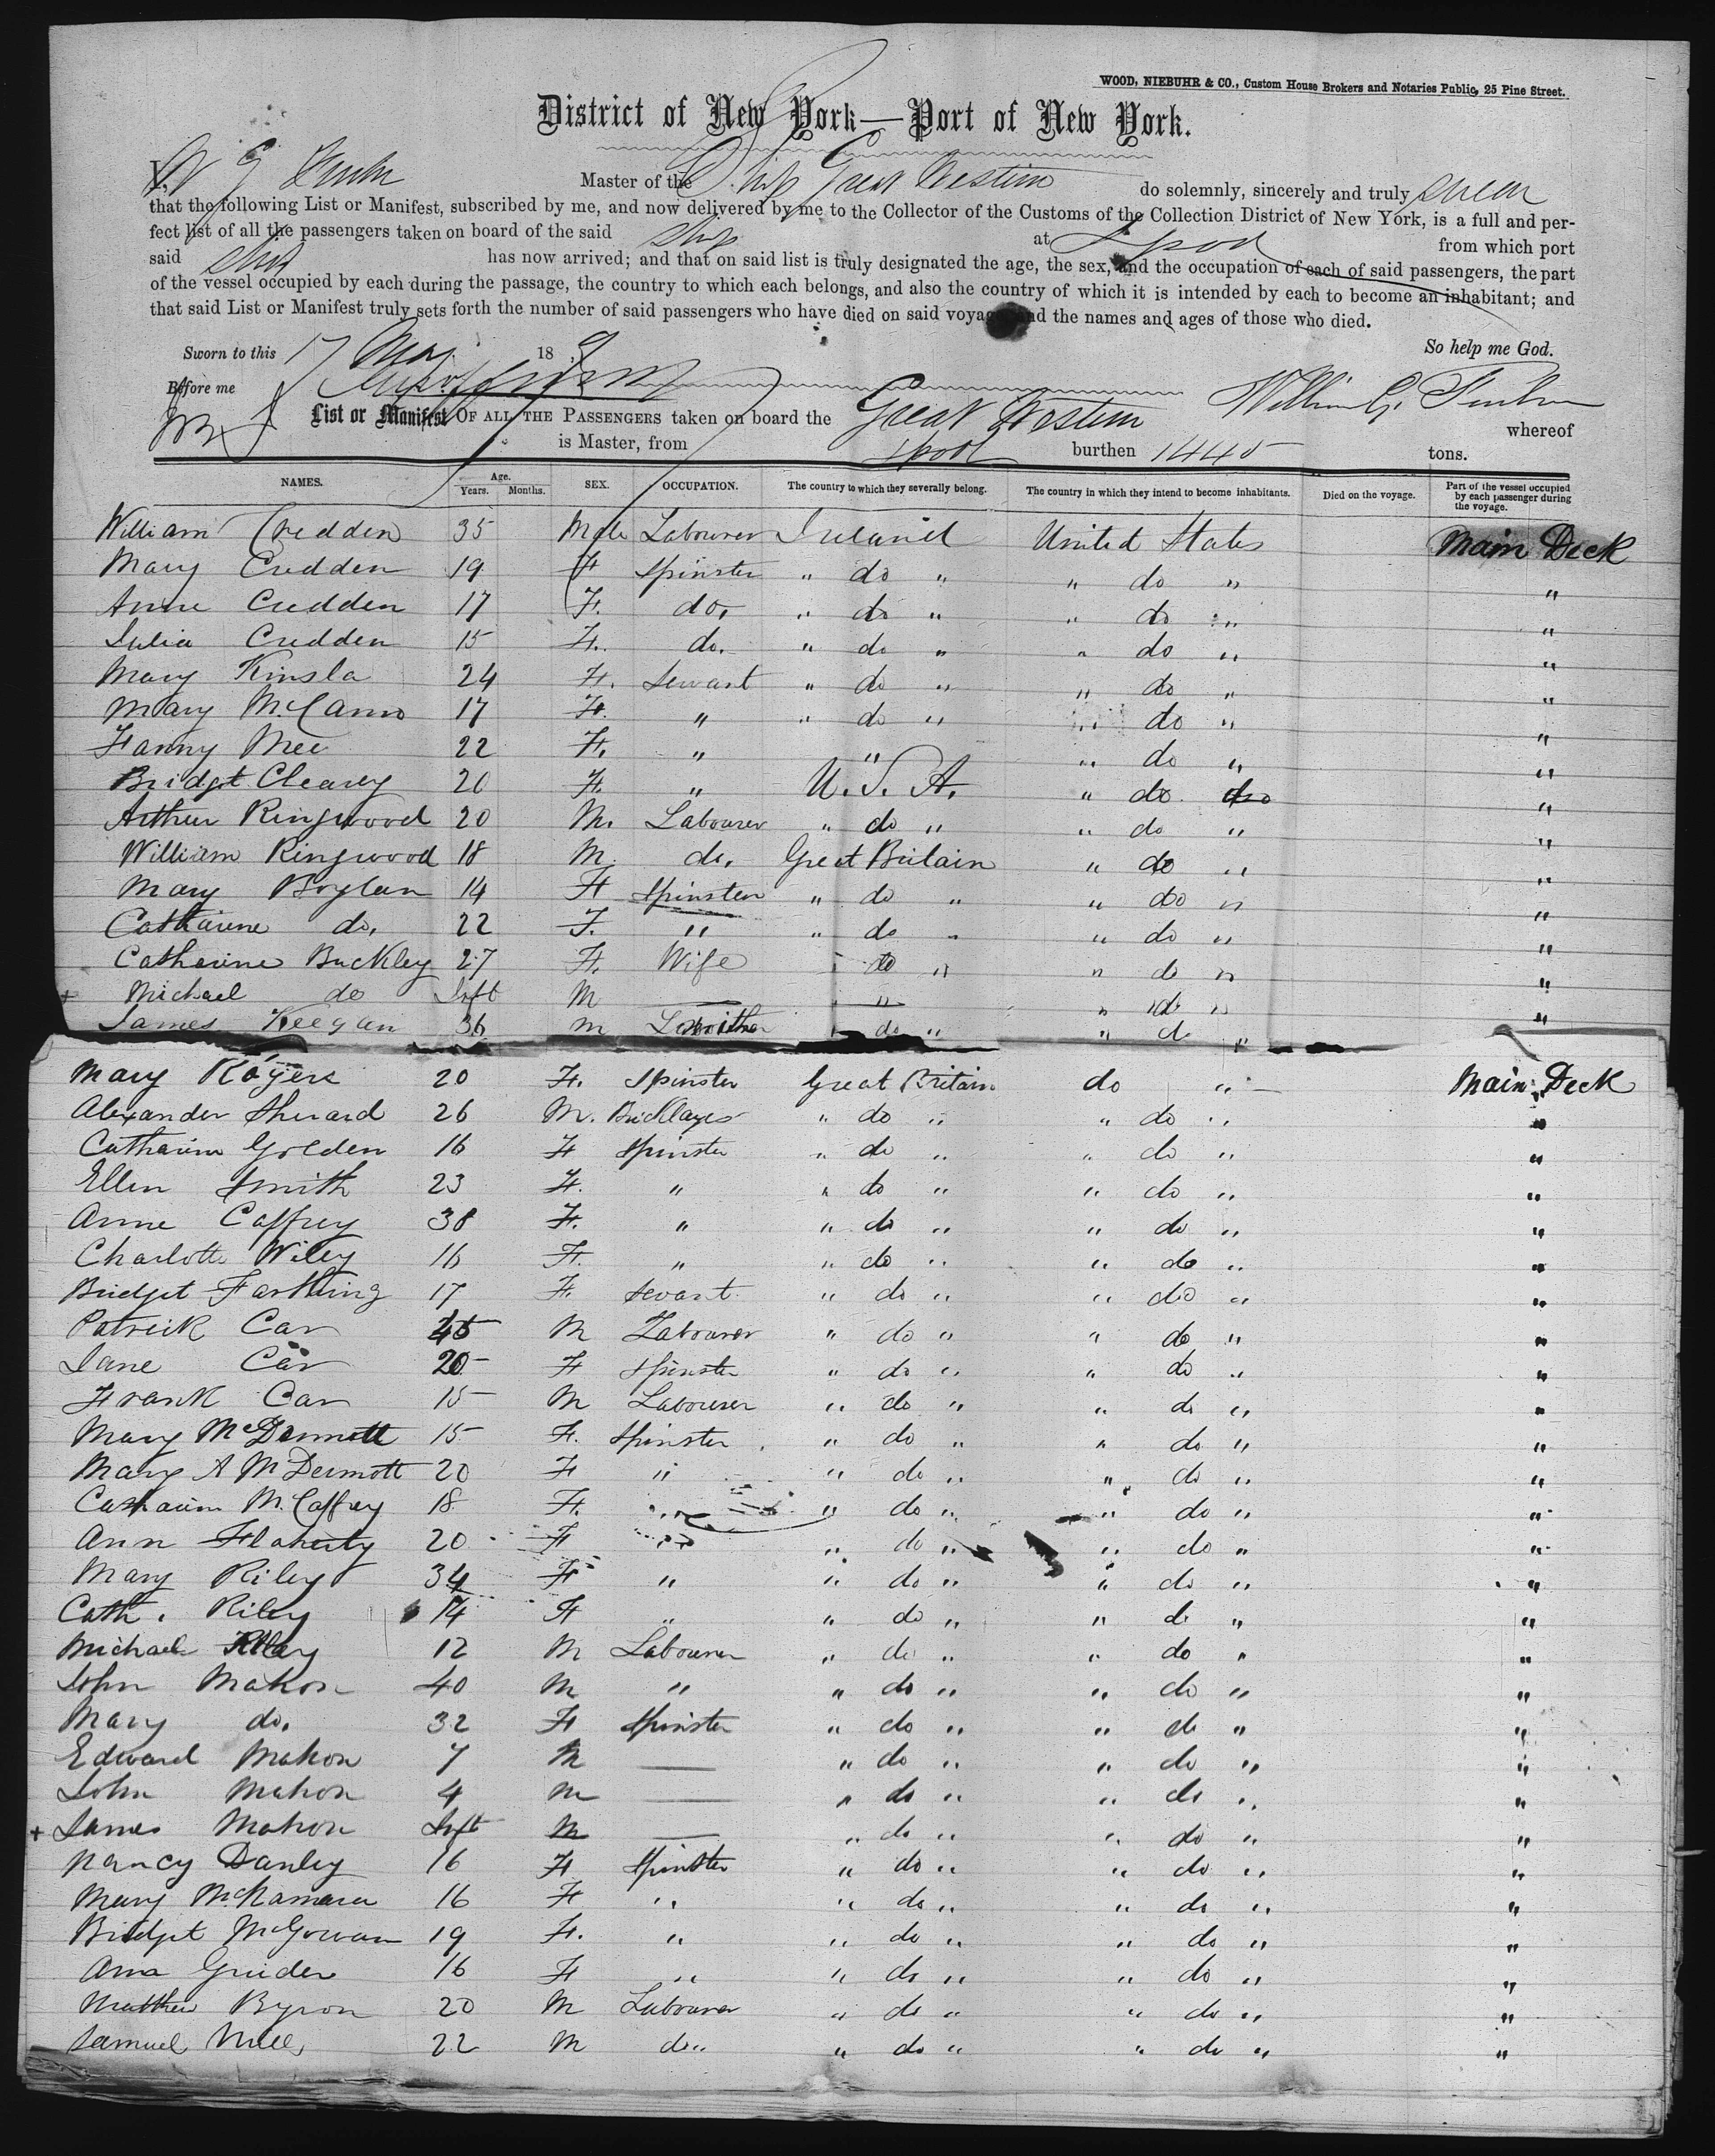 WOOD, NIEBUHR & CO., Custom House Brokers and Notaries Public, 25 Pine Street.
District of New York—Port of New York.
I, W G Master of the Ship Great Western do solemnly, sincerely and truly swear
that the following List or Manifest, subscribed by me, and now delivered by me to the Collector of the Customs of the Collection District of New York, is a full and per-
fect list of all the passengers taken on board of the said ship at Lpool from which port
said ship has now arrived; and that on said list is truly designated the age, the sex, and the occupation of each of said passengers, the part
of the vessel occupied by each during the passage, the country to which each belongs, and also the country of which it is intended by each to become an inhabitant; and
that said List or Manifest truly sets forth the number of said passengers who have died on said voyage, and the names and ages of those who died.
Sworn to this 17 May 18 9 So help me God.
Before me William G.
List or Manifest OF ALL THE PASSENGERS taken on board the Great Western whereof
is Master, from Lpool burthen 1445 tons.
NAMES. Age. Years. Months. SEX. OCCUPATION. The country to which they severally belong. The country in which they intend to become inhabitants. Died on the voyage. Part of the vessel occupied by each passenger during the voyage.
William Credden 35 Male Labourer Ireland United States Main Deck
Mary Credden 19 F Spinster " do " " do " "
Anne Credden 17 F. do. " do " " do " "
Julia Credden 15 F. do. " do " " do " "
Mary Kinsla 24 F. Servant " do " " do " "
Mary McCann 17 F. " " do " " do " "
Fanny Mee 22 F. " " " do " "
Bridget Cleary 20 F. " U.S.A. " do do "
Arthur Ringwood 20 M. Labourer " do " " do " "
William Ringwood 18 M. do. Great Britain " do " "
Mary Boylan 14 F Spinster " do " " do " "
Catharine do. 22 F. " " do " " do " "
Catherine Buckley 27 F. Wife " do " " do " "
+ Michael do Inft M — " " do " "
James Keegan 36 M " do " " do "
Mary Rogers 20 F. Spinster Great Britain do " Main Deck
Alexander Sherard 26 M. Bricklayer " do " " do " "
Catharine Golden 16 F Spinster " do " " do " "
Ellen Smith 23 F. " " do " " do " "
Anne Caffrey 38 F. " " do " " do " "
Charlotte Wiley 16 F. " " do " " do " "
Bridget Farthing 17 F. Servant " do " " do " "
Patrick Car 45 M Labourer " do " " do " "
Jane Car 20 F Spinster " do " " do " "
Frank Car 15 M Labourer " do " " do " "
Mary McDermott 15 F. Spinster " do " " do " "
Mary A McDermott 20 F " " do " " do " "
Catharine McCaffrey 18 F. " " do " " do " "
Ann Flaherty 20 F " " do " " do " "
Mary Riley 34 F " " do " " do " "
Cath. Riley 14 F " " do " " do " "
Michael Riley 12 M Labourer " do " " do " "
John Mahon 40 M " " do " " do " "
Mary do. 32 F Spinster " do " " do " "
Edward Mahon 7 M — " do " " do " "
John Mahon 4 M — " do " " do " "
+ James Mahon Inft M — " do " " do " "
Nancy Danley 16 F Spinster " do " " do " "
Mary McNamara 16 F " " do " " do " "
Bridget McGowan 19 F. " " do " " do " "
Ann 16 F " " do " " do " "
Matthew Byron 20 M Labourer " do " " do " "
Samuel 22 M do " " do " " do " "